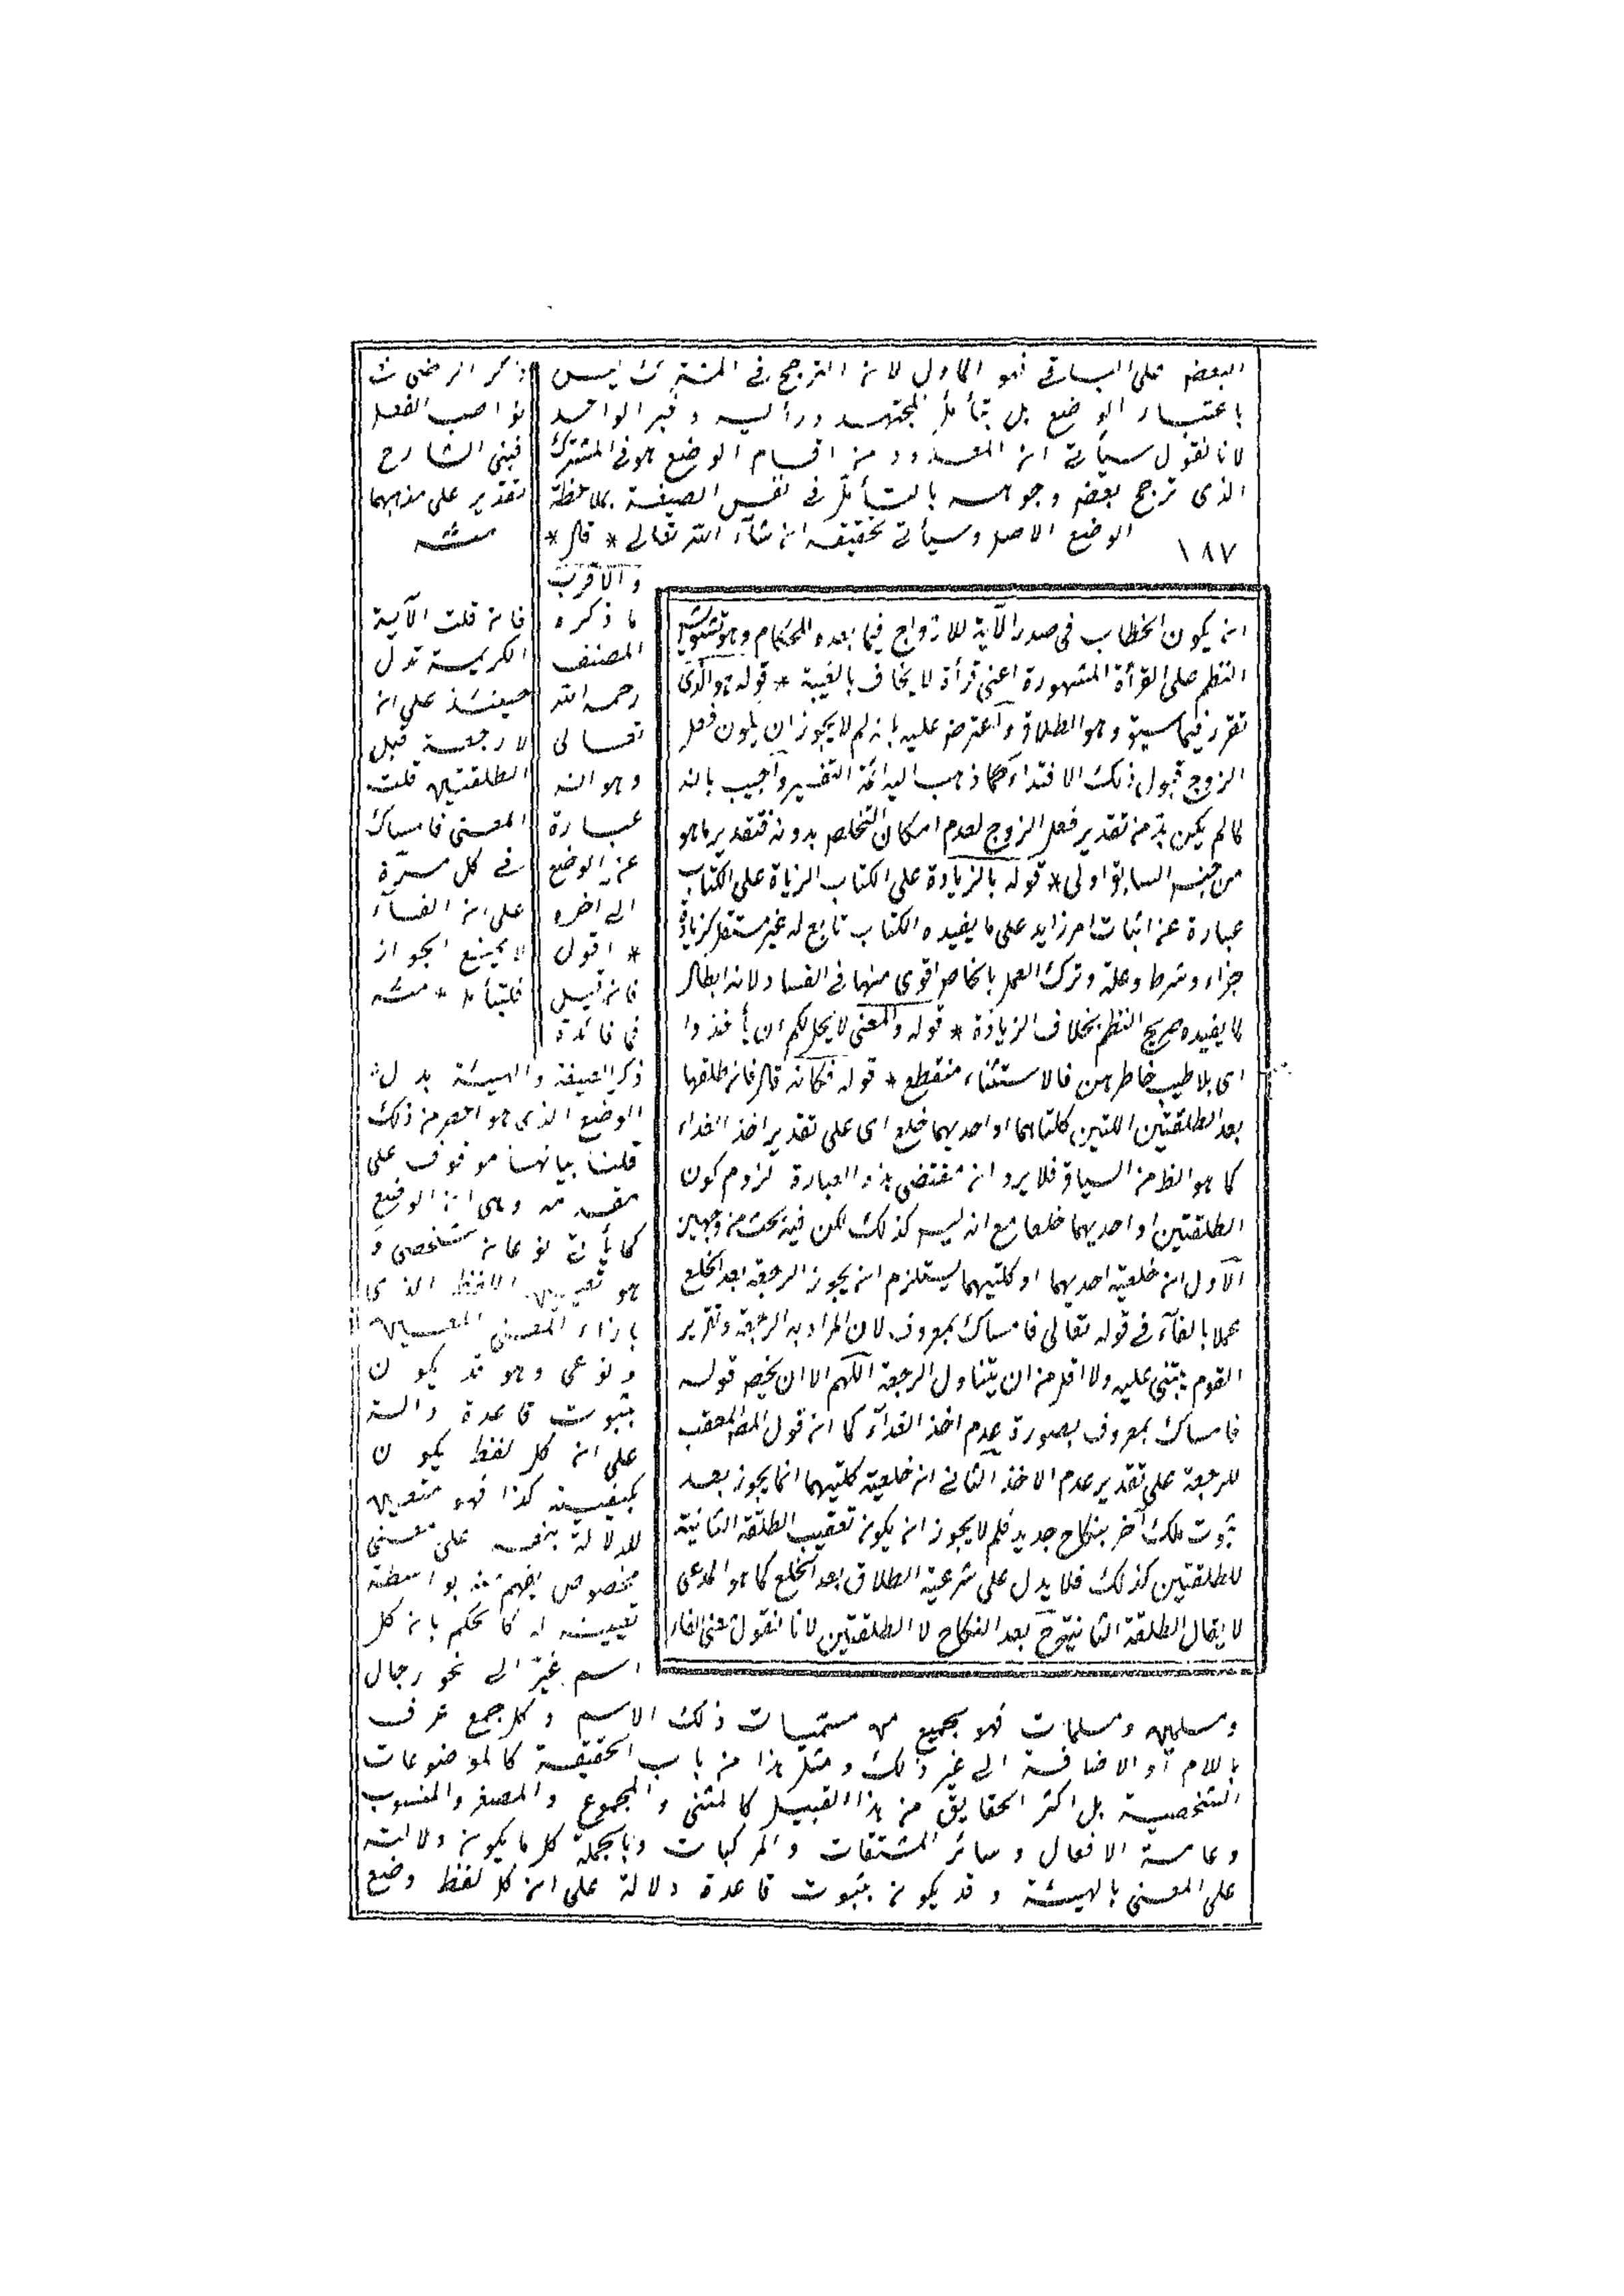 البعض على الباقى فهو الماول لان الترجح فى المشترك ليس
باعتبار الوضع بل بتأمل المجتهد ورأيه وخبر الواحد
لانا نقول سيأتى ان المعدود من اقسام الوضع هو فى المشترك
الذى ترجح بعض وجوهه بالتأمل فى نفس الصيغة بملاحظة
الوضع الاصل وسيأتى تحقيقه ان شاء الله تعالى * قال *
١٨٧
والاقرب
ما ذكره
المصنف
رحمه الله
تعالى
وهو انه
عبارة
عن الوضع
الى اخره
* اقول
فان قيل
فى فائدة
ذكر الصيغة والهيئة بدل
الوضع الذى هو اخصر من ذلك
قلنا بيانها موقوف على
مقدمة وهى ان الوضع
كما يأتى نوعان شخصى و
هو تعيين اللفظ الذى
بازاء المعنى المعين
ونوعى وهو قد يكون
بثبوت قاعدة دالة
على ان كل لفظ يكون
بكيفية كذا فهو متعين
للدلالة بنفسه على معنى
مخصوص يفهم منه بواسطة
تعيينه له كالحكم بان كل
اسم غير الى نحو رجال
ومسلمين ومسلمات فهو لجميع من مسميات ذلك الاسم وكل جمع عرف
باللام او الاضافة الى غير ذلك ومثل هذا من باب الحقيقة كالموضوعات
الشخصية بل اكثر الحقايق من هذا القبيل كالمثنى والمجموع والمصغر والمنسوب
وعامة الافعال وسائر المشتقات والمركبات وبالجملة كل ما يكون دلالته
على المعنى بالهيئة وقد يكون بثبوت قاعدة دالة على ان كل لفظ وضع
ذكر الرضى
نواصب الفعل
فبنى الشارح
تقدير على مذهبهما
منه
فان قلت الآية
الكريمة تدل
حينئذ على ان
لا رجعة قبل
الطلقتين قلت
المعنى فامساك
فى كل مرة
على ان الفاء
لا يمنع الجواز
فليتأمل * منه
ان يكون الخطاب فى صدر الآية للازواج فيما بعده للحكام وهو تشويش
النظم على القرأة المشهورة اعنى قرأة لا يخاف بالغيبة * قوله هو الذى
تقرر فيما سبق وهو الطلاق واعترض عليه بانه لم لا يجوز ان يكون فعل
الزوج قبول ذلك الافتداء كما ذهب اليه ائمة التفسير واجيب بانه
لما لم يكن بد من تقدير فعل الزوج لعدم امكان التخلص بدونه فتقدير ما هو
من جنس السابق اولى * قوله بالزيادة على الكتاب الزياة على الكتاب
عبارة عن اثبات امر زايد على ما يفيده الكتاب تابع له غير مستقل كزيادة
جزاء وشرط وعلة وترك العمل بالخاص اقوى منها فى الفساد لانه ابطال
لما يفيده صريح النظم بخلاف الزيادة * قوله والمعنى لا يحل لكم ان يأخذوا
اى بلا طيب خاطرهن فالاستثناء منقطع * قوله فكانه قال فان طلقها
بعد الطلقتين اللتين كلتاهما او احديهما خلع اى على تقدير اخذ الفداء
كما هو الظ من السياق فلا يرد ان مقتضى هذه العبارة لزوم كون
الطلقتين او احديهما خلعا مع انه ليس كذلك لكن فيه بحث من وجهين
الاول ان خلعية احديهما او كلتيهما يستلزم ان يجوز الرجعة بعد الخلع
عملا بالفاء فى قوله تعالى فامساك بمعروف لان المراد به الرجعة وتقرير
القوم يبتنى عليه ولا اقل من ان يتناول الرجعة اللهم الا ان يخص قوله
فامساك بمعروف بصورة عدم اخذ الفداء كما ان قول المص المعقب
للرجعة على تقدير عدم الاخذ الثانى ان خلعية كلتيهما انما يجوز بعد
ثبوت ملك آخر بنكاح جديد فلم لا يجوز ان يكون تعقيب الطلقة الثانية
للطلقتين كذلك فلا يدل على شرعية الطلاق بعد الخلع كما هو المدعى
لا يقال الطلقة الثانية ح بعد النكاح لا الطلقتين لانا نقول معنى الفاء